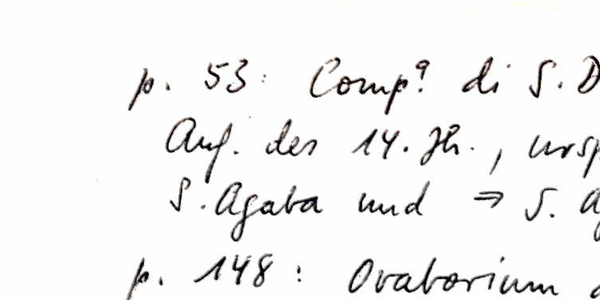 p. 53: Compª di S. D
Anf. des 14. Jh., ursp
S. Agata und ⇒ S. Ag
p. 148: Oratorium